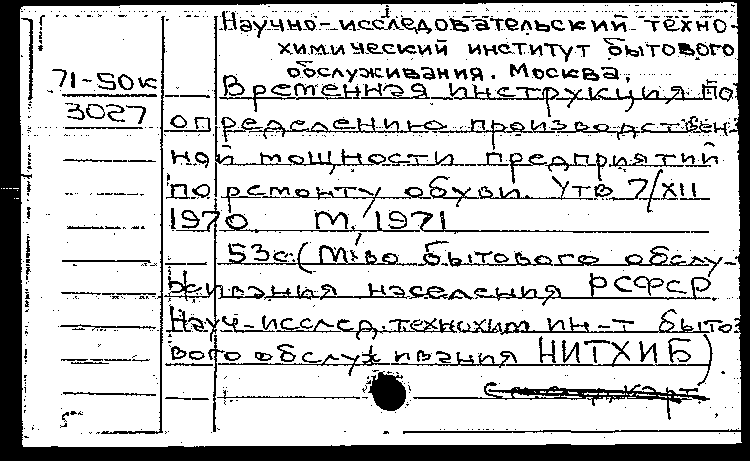 Научно-исследовательский техно-
химический институт бытового
обслуживания. Москва,
71-50к
Временная инструкция по
3027
определению производствен-
ной мощности предприятий
по ремонту обуви. Утв 7/XII
1970. М., 1971
53с. (М-во бытового обслу-
живания населения РСФСР
Науч-исслед. технохим ин-т быто-
вого обслуживания НИТХИБ)
5